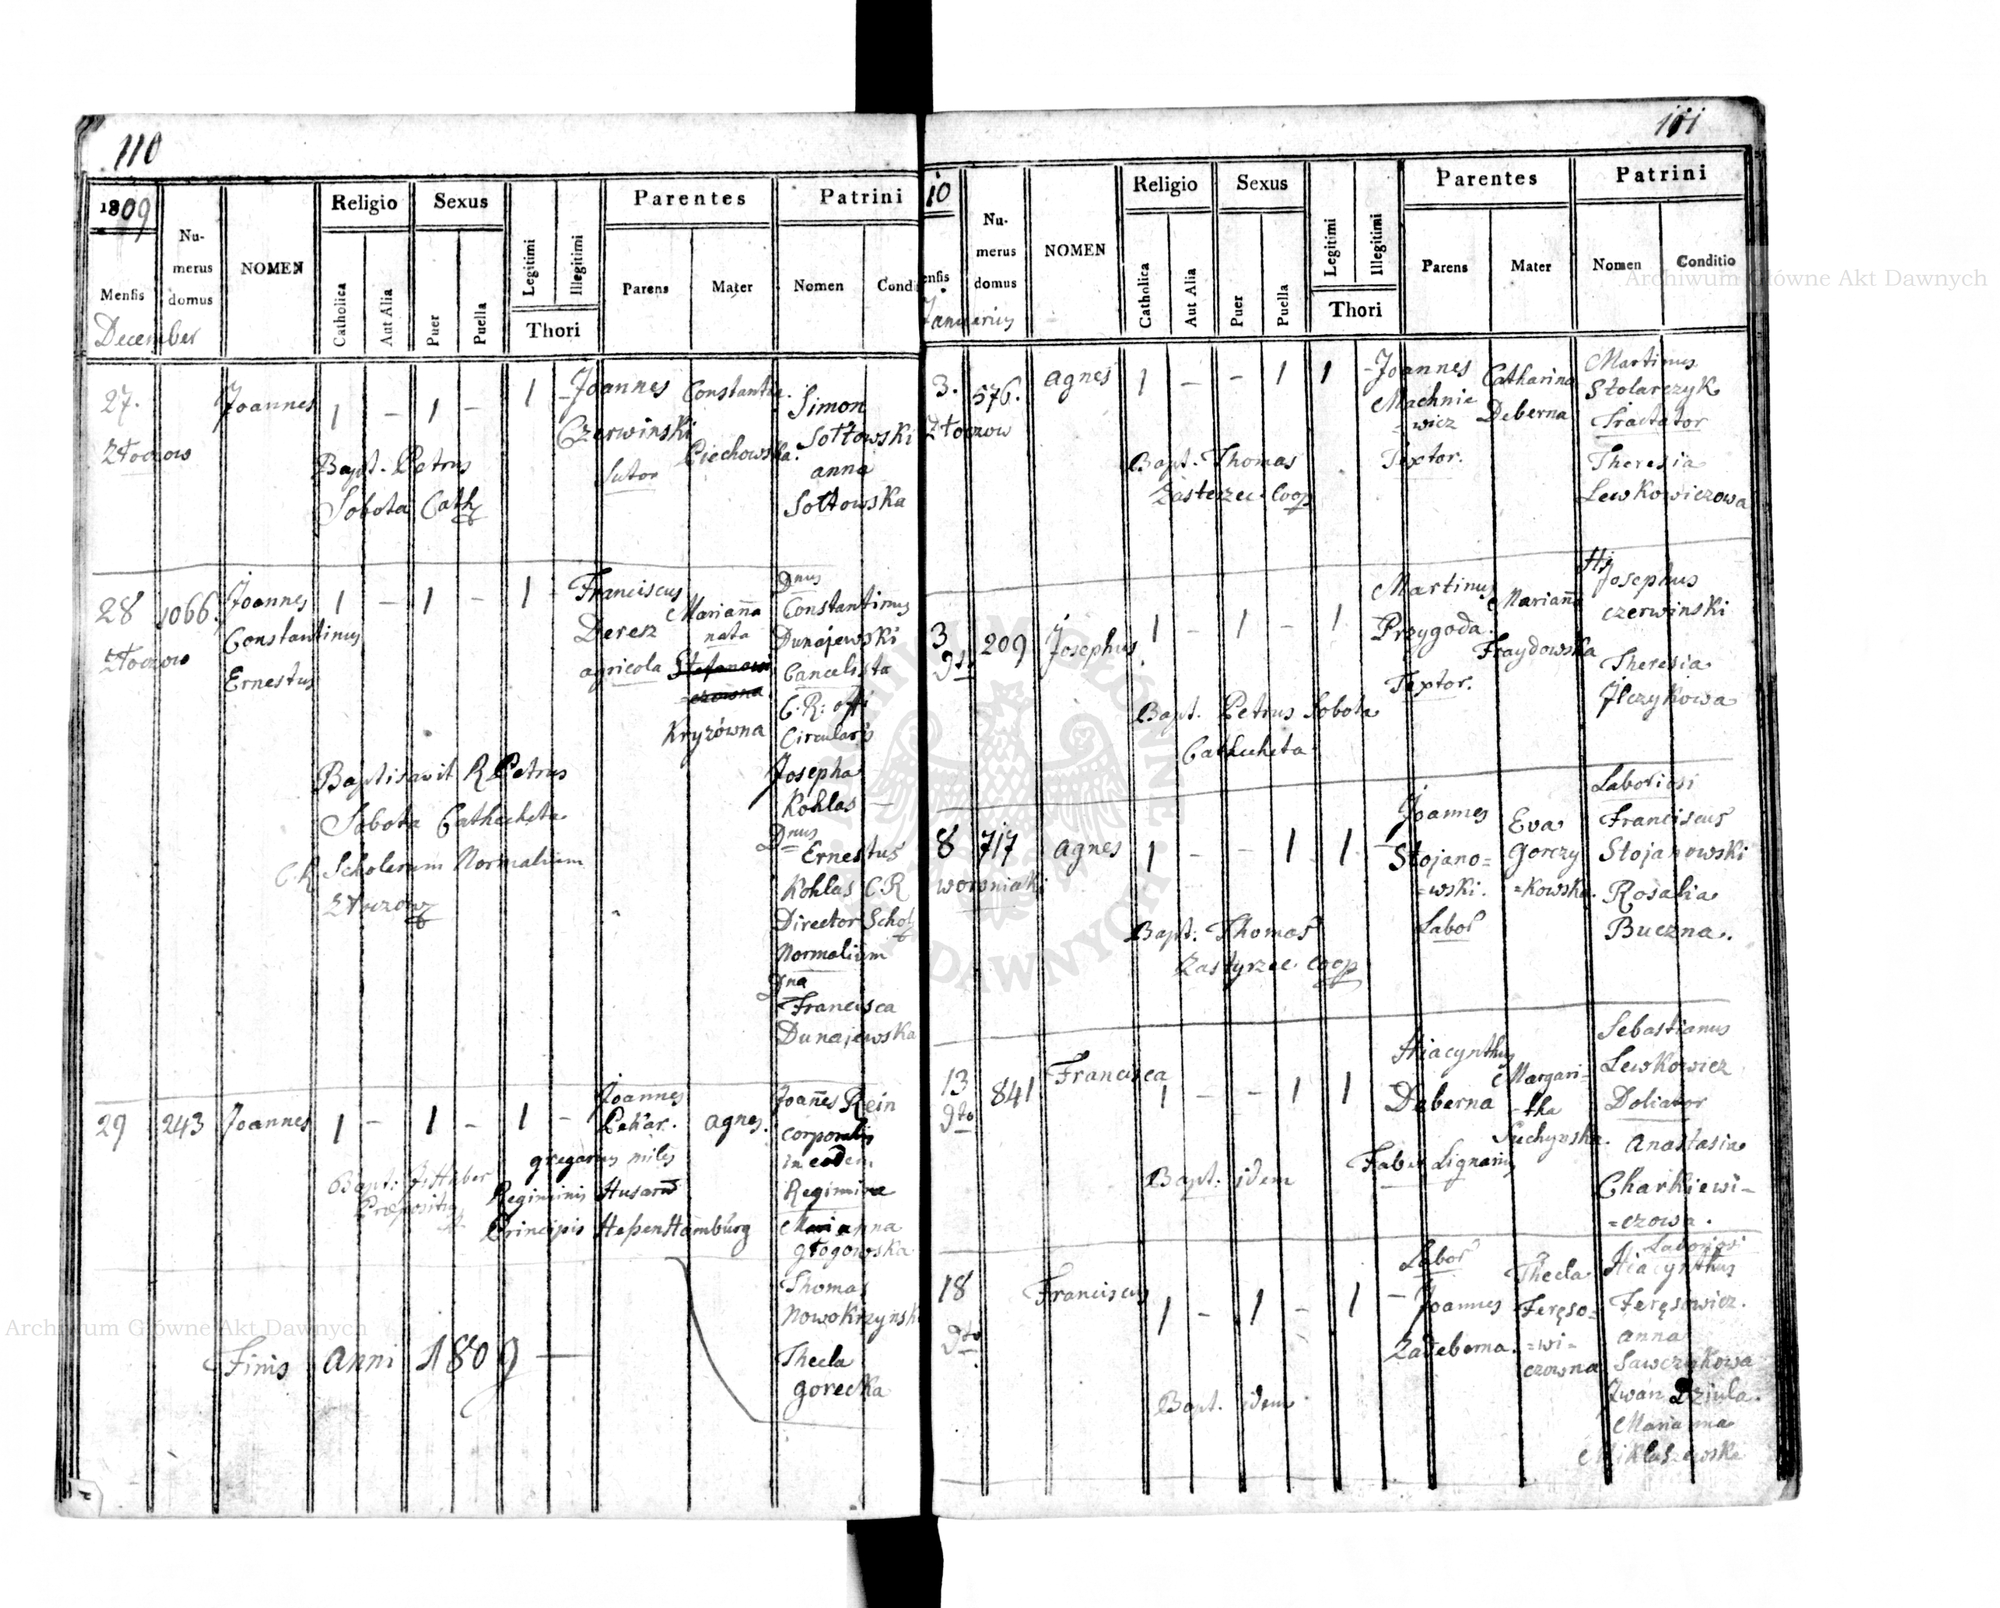 110
1809
Mensis
December
Nu-
merus
domus
NOMEN
Religio
Catholica
Aut Alia
Sexus
Puer
Puella
Legitimi
Illegitimi
Thori
Parentes
Parens
Mater
Patrini
Nomen
Condi
27.
Złoczow
Joannes
1 – 1 – 1 –
Bapt. Petrus
Sobota Cath
Joannes
Czerwinski
Sutor
Constantia
Ciechowska.
Simon
Sołtowski
anna
Sołtowska
28 1066.
Złoczow
Joannes
Constantinus
Ernestus
1 – 1 – 1 –
Baptisavit R Petrus
Sobota Cathecheta
C.R. Scholarum Normalium
Franciscus
Deresz
agricola
Marianna
nata
Stefanowi
czowna
Kryzówna
Dnus
Constantinus
Dunajewski
Cancelista
C: R: offi
Circularis
Josepha
Kohlas –
Dnus
Ernestus
Kohlas C.R
Director Schol
Normalium
Dna
Francisca
Dunajewska
29 243 Joannes
1 – 1 – 1 –
Bapt: Huber
Præpositus
Joannes
Pekar.
agnes.
gregarius miles
Regiminis Husarū
Principis Heßen Hamburg
Joanes Rein
Corporalis
in eodem
Regimine
Marianna
głogowska
Thomas
Nowokrzyński
Thecla
gorecka
Finis anni 1809 –
111
10
ensis
Januarius
Nu-
merus
domus
NOMEN
Religio
Catholica
Aut Alia
Sexus
Puer
Puella
Legitimi
Illegitimi
Thori
Parentes
Parens
Mater
Patrini
Nomen
Conditio
3. 576. agnes
Złoczow
1 – – 1 1 –
Bapt. Thomas
Zasterzec Coop
Joannes
Machnie
=wicz
Textor.
Catharina
Deberna
Martinus
Stolarczyk
Tractator
Theresia
Lewkowiczowa
3 209 Josephus
dto
1 – 1 – 1
Bapt. Petrus Sobota
Cathecheta
Martinus
Przygoda.
Textor.
Marianna
Fraydowska
Josephus
czerwinski
Theresia
Jlczykowa
8 717 agnes
woroniaki
1 – – 1 1 –
Bapt: Thomas
Zastyrzec Coop
Joannes
Stojano=
=wski.
Labor
Eva
Gorczy
=kowska.
Laboriosi
Franciscus
Stojanowski
Rosalia
Buczna.
13 841 Francisca
dto
1 – – 1 1 –
Bapt: idem
Hiacynthus
Deberna
Faber Lignarius
Margari=
=tha
Suchyvska.
Sebastianus
Lewkowicz
Doliator
Anastasia
Charkiewi=
=czowa.
18 Franciscus
dto
1 – 1 – 1 –
Bapt. idem
Labor
Joannes
Zadeberna.
Thecla
Feręso=
=wi=
czowna
Laboriosi
Hiacynthus
Feręsowicz.
anna
Sawczykowa
Jwan Dziula.
Marianna
Mikłaszewska
Archiwum Główne Akt Dawnych
Archiwum Główne Akt Dawnych
ARCHIWUM GŁÓWNE AKT DAWNYCH